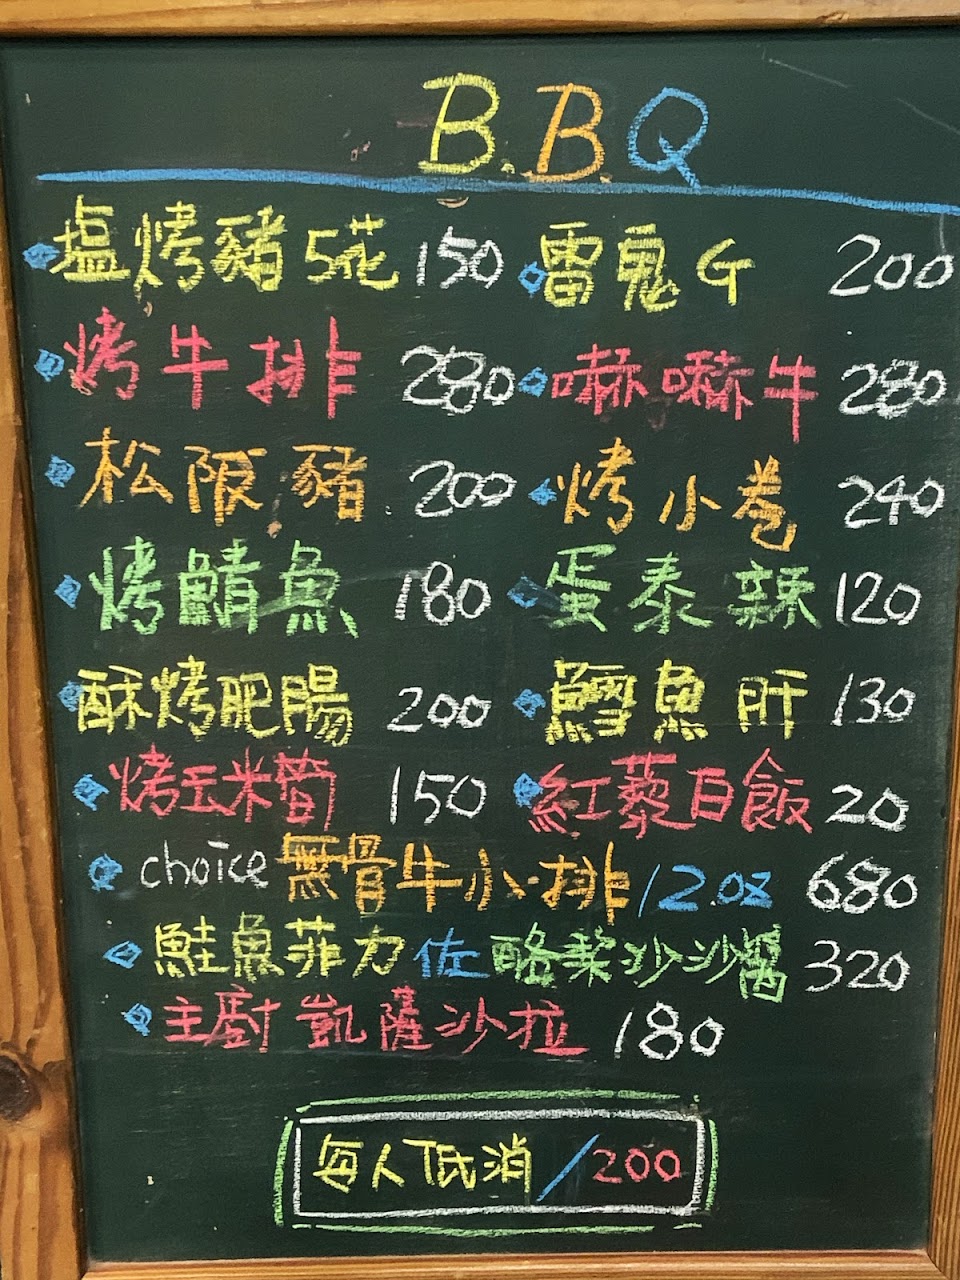 B.B.Q
塩烤豬5花 150 雷鬼G 200
烤牛排 280 嚇嚇牛 280
松阪豬 200 烤小卷 240
烤鯖魚 180 蛋泰辣 120
酥烤肥腸 200 鱈魚肝 130
烤玉米筍 150 紅藜白飯 20
choice 無骨牛小排 12.oz 680
鮭魚菲力佐酪梨沙沙醬 320
主廚凱薩沙拉 180
每人低消/200